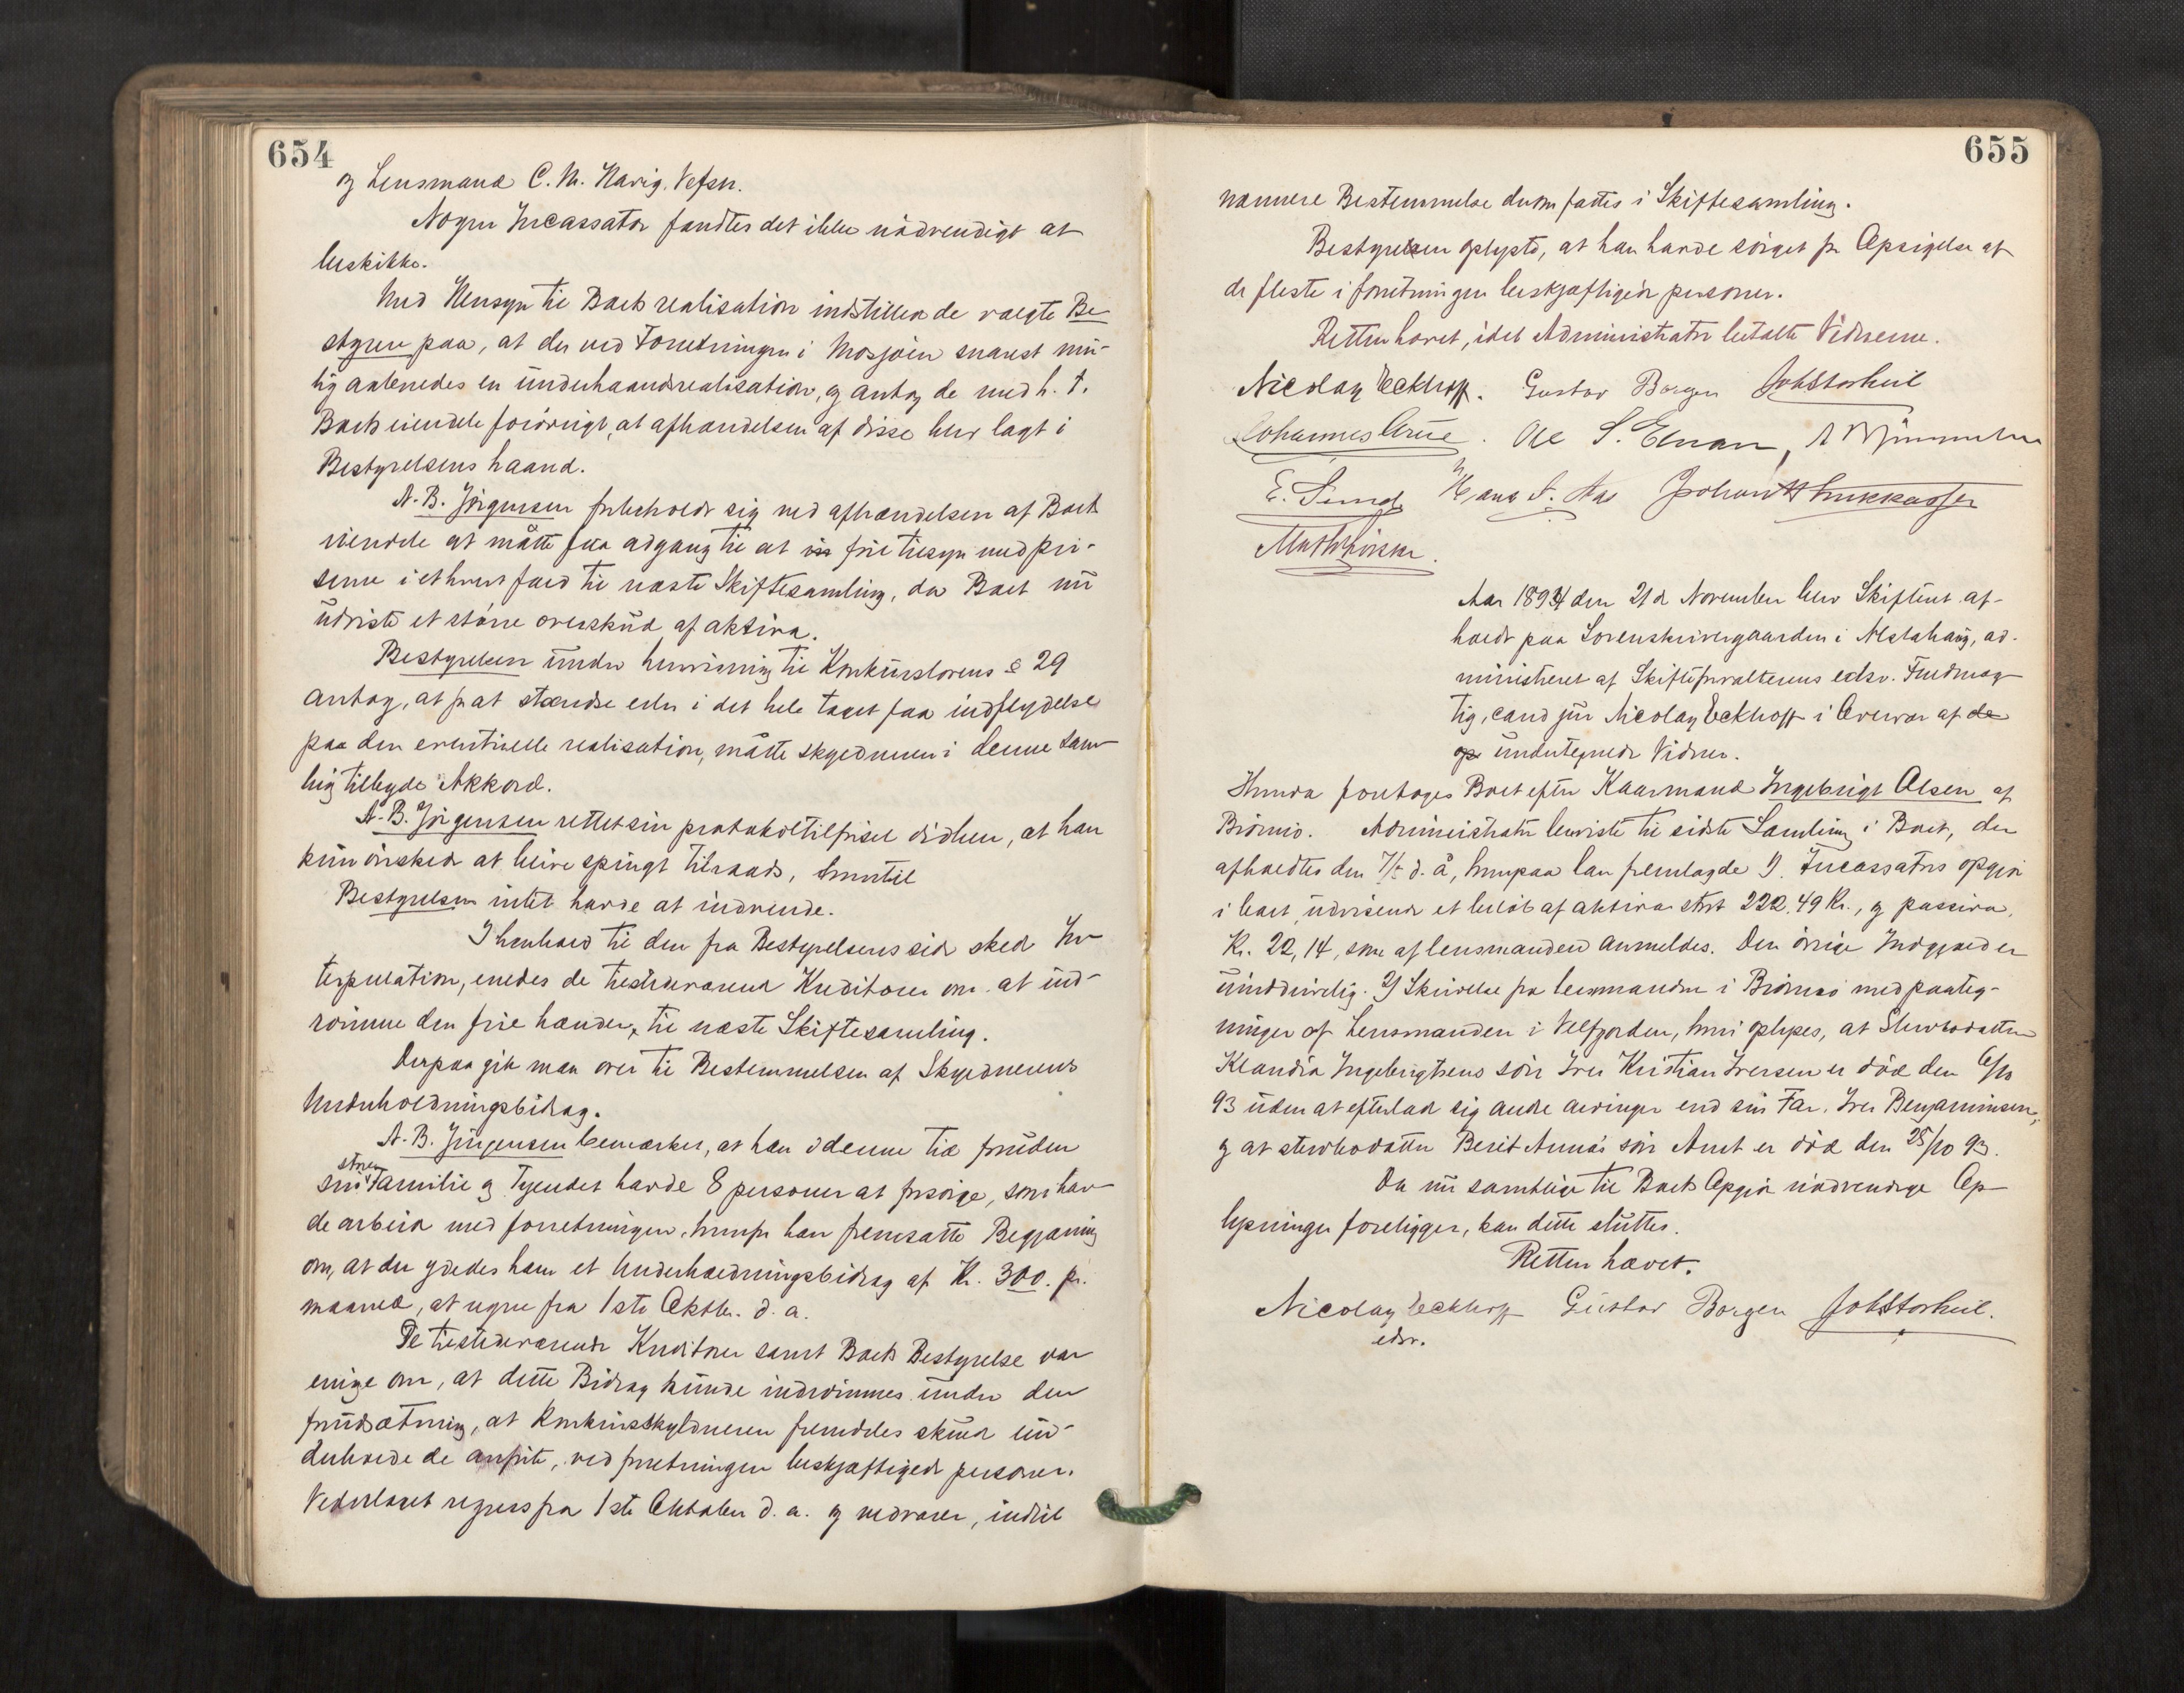 654
og Lensmand C. M. Havig, Vefsn.
Nogen Incassator fandtes det ikke nödvendigt at
beskikke.
Med Hensyn til Boets realisation indstilled de valgte Be-
styrere paa, at der ved Forretningen i Mosjöen snarest mu-
lig aabenedes en underhaandsrealisation, og antog de med h. t.
Boets eiendele forövrigt, at afhændelsen af disse blev lagt i
Bestyrelsens haand.
A. B. Jörgensen forbeholdt sig ved afhændelsen af Boets
eiendele at måtte faa adgang til at före tilsyn med pri-
serne i ethvert fald til næste Skiftesamling, da Boet nu
udviste et större overskud af aktiva.
Bestyrelsen under henvisning til Konkurslovens § 29
antog, at for at standse eller i det hele taget faa indflydelse
paa den eventuelle realisation, måtte skyldneren i denne Sam-
ling tilbyde Akkord.
A. B. Jörgensen rettet sin protokoltilförsel didhen, at han
kun önsked at blive spurgt tilraads, hvortil
Bestyrelsen intet havde at indvende.
I henhold til den fra Bestyrelsens side sked In-
terpelation, enedes de tilstedeværende Kreditorer om at ind-
römme den frie hænder til næste Skiftesamling.
Derpaa gik man over til Bestemmelsen af Skyldnerens
Underholdningsbidrag.
A. B. Jörgensen bemærker, at han i denne tid foruden
sin store Familie og Tyendet havde 8 personer at forsörge, som hav-
de arbeid med forretningen, hvorfor han fremsatte Begjæring
om, at der ydedes ham et Underholdningsbidrag af Kr. 300. pr.
maaned, at regne fra 1ste Oktbr. d. a.
De tilstedeværende Kreditorer samt Boets Bestyrelse var
enige om, at dette Bidrag kunde indrömmes under den
forudsætning, at Konkursskyldneren fremdeles skulde un-
derholde de anförte, ved forretningen beskjæftigede personer.
Vederlaget regnes fra 1ste Oktober d. a. og vedvarer, indtil
655
nærmere Bestemmelse derom fattes i Skiftesamling.
Bestyrelsen oplyste, at han havde sörget for Opsigelse af
de fleste i forretningen beskjæftigede personer.
Retten hævet, idet Administrator betalte Vidnerne.
Nicolay Eckhoff. Gustav Borgen Joh Storheil
Johannes Grue. Ole S.
E. Sund Hans A. Aas Johan
Aar 1894 den 21de November blev Skifteret af-
holdt paa Sorenskrivergaarden i Alstahaug, ad-
ministreret af Skifteforvalterens edsv. Fuldmæg-
tig, cand jur Nicolay Eckhoff i Overvær af de
undertegnede Vidner.
Hvorda foretoges Boet efter Kaarmand Ingebrigt Olsen af
Brönnö. Administrator henviste til sidste Samling i Boet, der
afholdtes den 7/5 d. å, hvorpaa han fremlagde 1). Incassators opgjör
i boet, udvisende et belöb af aktiva stort 222,49 Kr., og passiva,
Kr. 22,14, som af lensmanden anmeldes. Den övrige Indgjæld er
uinddrivelig. 2) Skrivelse fra lensmanden i Brönnö med paateg-
ninger af Lensmanden i Velfjorden, hvori oplyses, at Stervbodatteren
Klaudia Ingebrigtsens sön Iver Kristian Iversen er död den 6/10
93 uden at efterlade sig andre arvinger end sin Far, Iver Benjaminsen,
og at stervbodatter Berit Annas sön Arnt er död den 25/10 93.
Da nu samtlige til Boets Opgjör nödvendige Op-
lysninger foreligger, kan dette sluttes.
Retten hævet.
Nicolay Eckhoff Gustav Borgen Joh Storheil.
edsv.